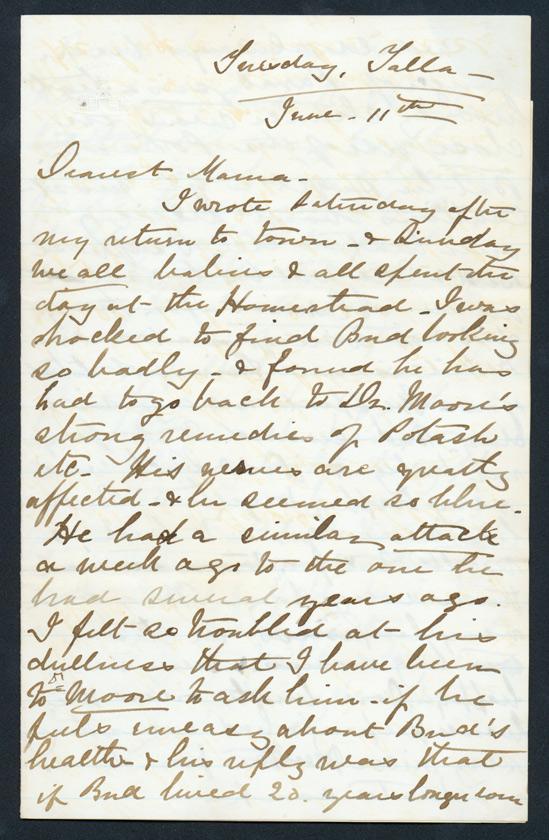 Tuesday, Talla -
June - 11th
Dearest Mama -
I wrote Saturday after
my return to town - & Sunday
we all babies & all spent the
day at the Homestead - I was
shocked to find Bud looking
so badly - & found he has
had to go back to Dr. Moore's
strong remedies of Potash
etc - His nerves are greatly
affected - & he seemed so blue -
He had a similar attack
a week ago to the one he
had several years ago.
I felt so troubled at his
dullness that I have been
to Dr Moore to ask him - if he
feels uneasy about Bud's
health & his reply was that
if Bud lived 20. years longer